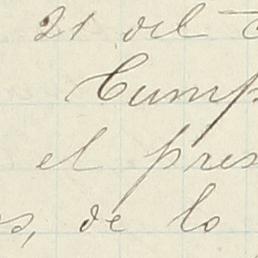 21 del
Cump
el pres
os, de lo